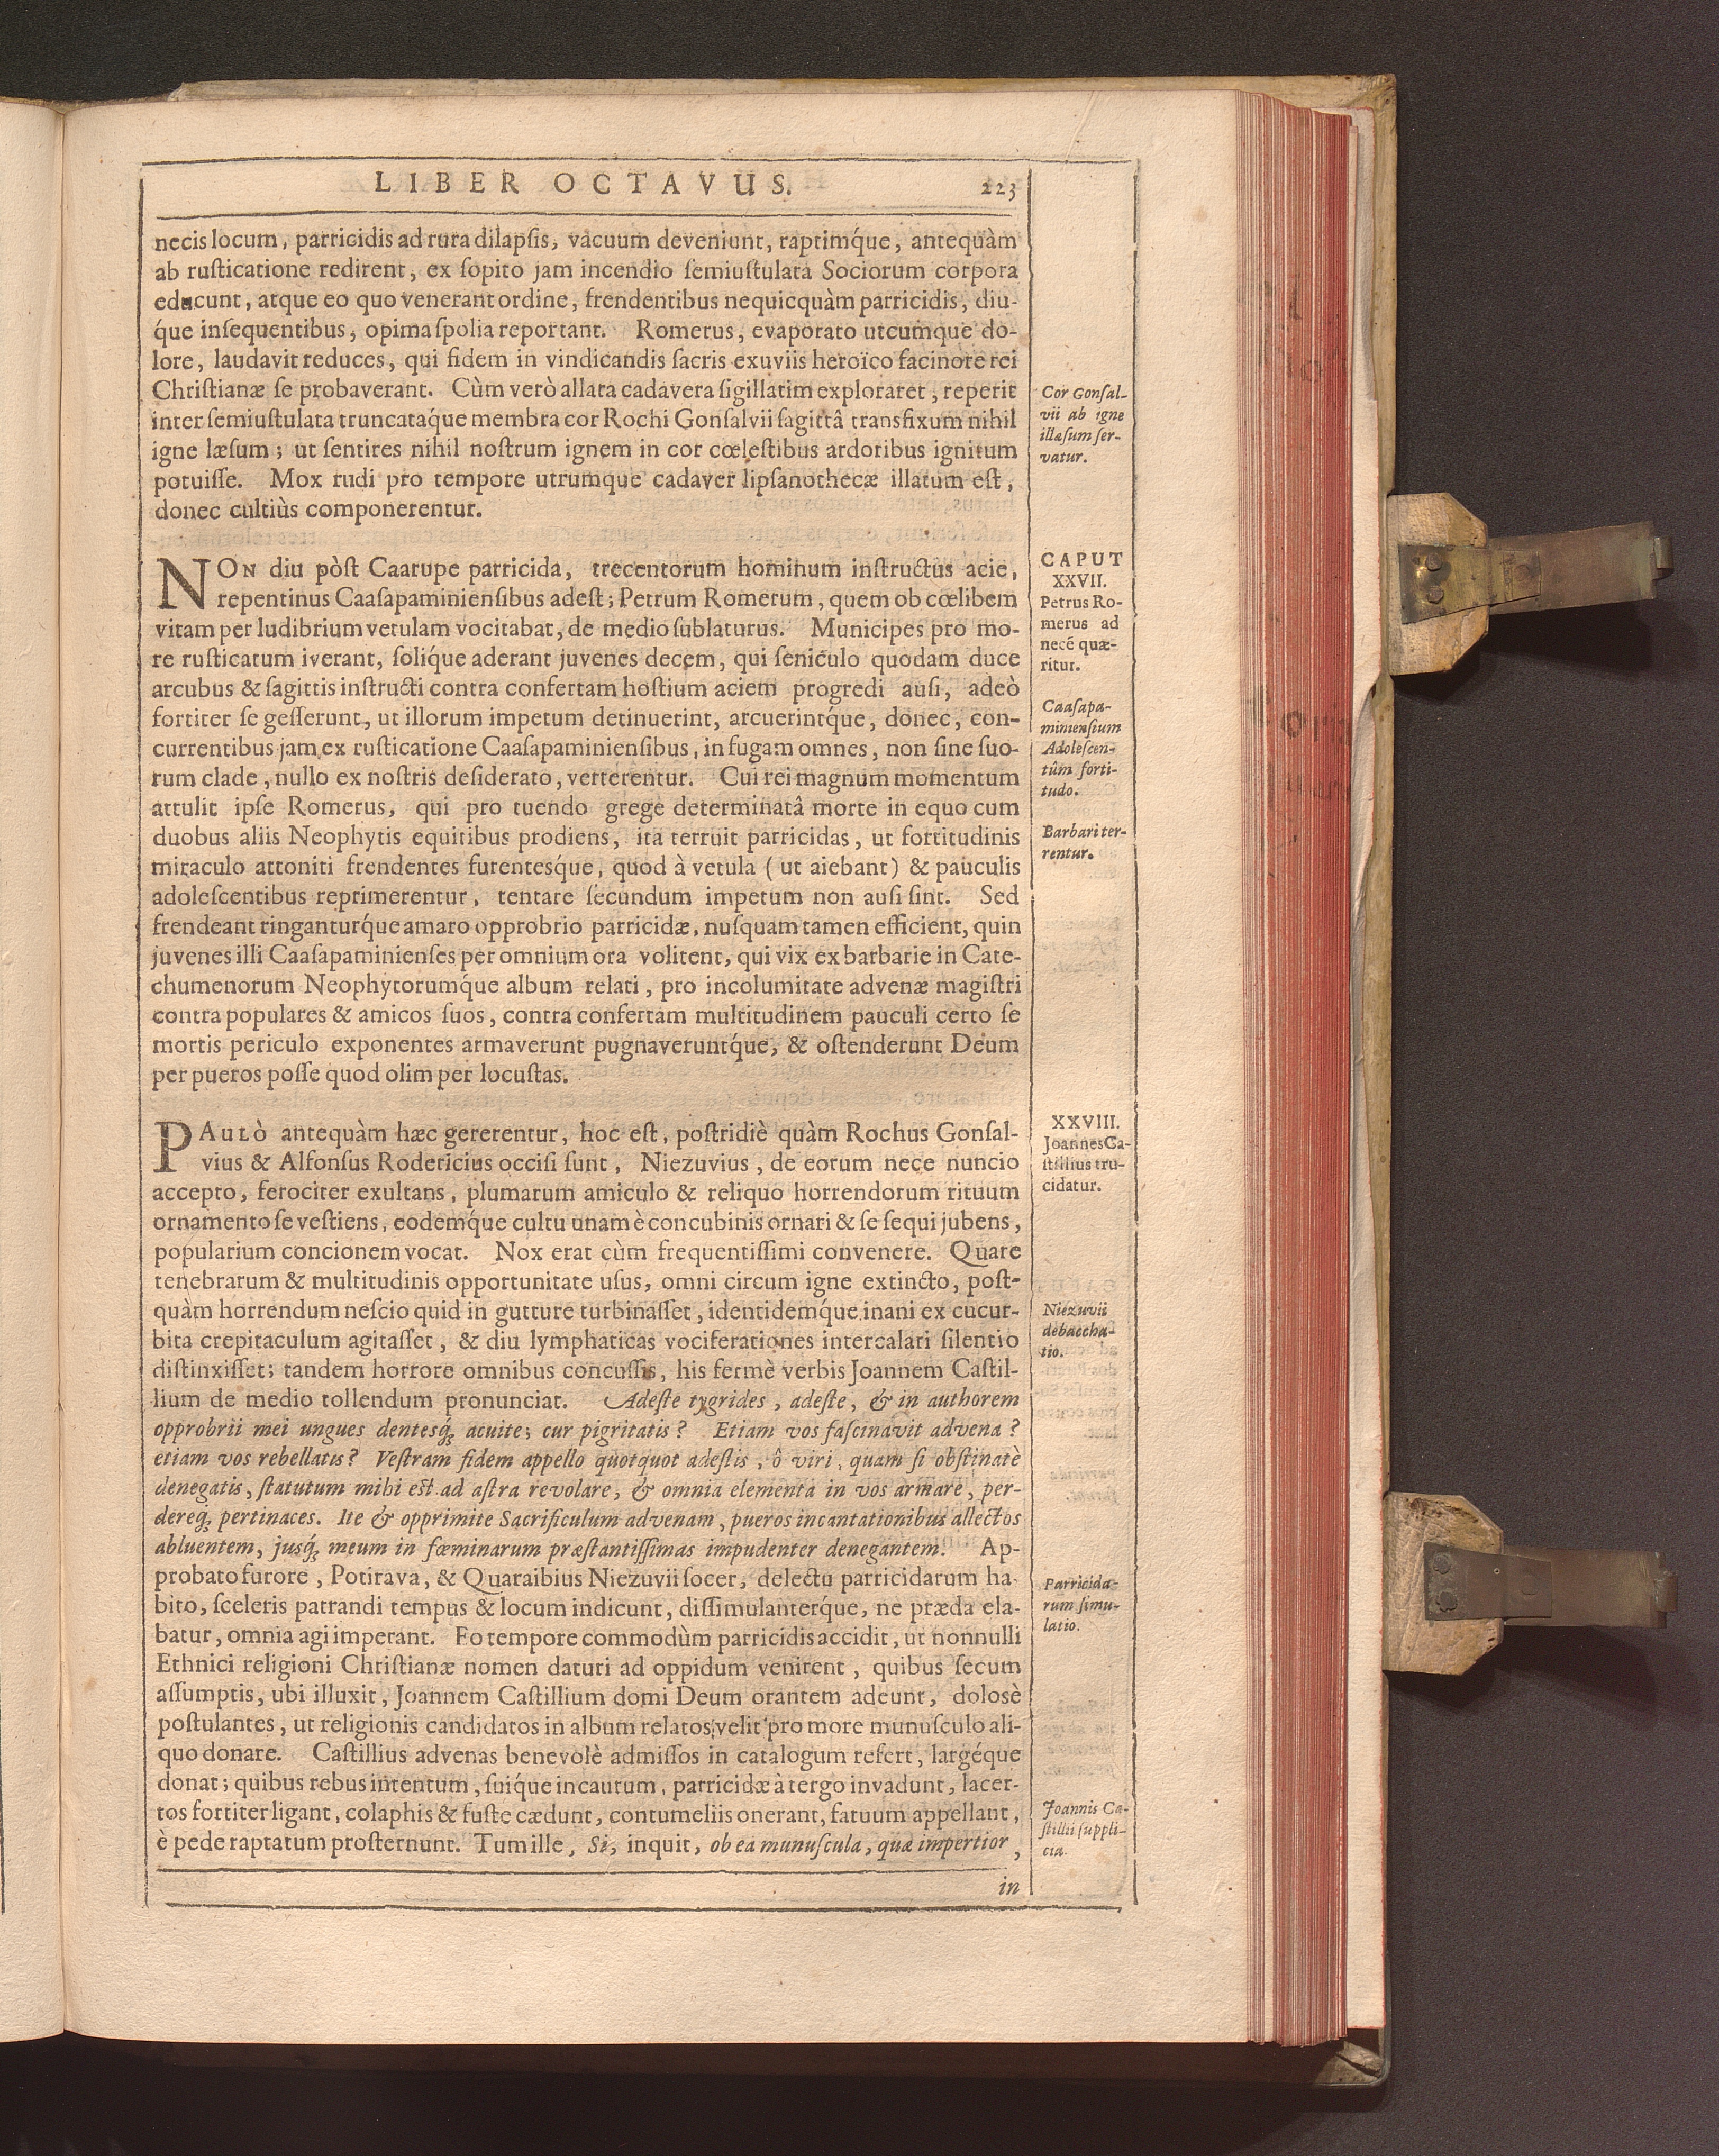 LIBER OCTAVUS. 223
necis locum, parricidis ad rura dilapſis, vacuum deveniunt, raptimq́ue, antequàm
ab ruſticatione redirent, ex ſopito jam incendio ſemiuſtulata Sociorum corpora
educunt, atque eo quo venerant ordine, frendentibus nequicquàm parricidis, diu-
q́ue inſequentibus, opima ſpolia reportant. Romerus, evaporato utcumque do-
lore, laudavit reduces, qui fidem in vindicandis ſacris exuviis heroïco facinore rei
Chriſtianæ ſe probaverant. Cùm verò allata cadavera ſigillatim exploraret, reperit
inter ſemiuſtulata truncataq́ue membra cor Rochi Gonſalvii ſagittâ transfixum nihil
igne læſum; ut ſentires nihil noſtrum ignem in cor cœleſtibus ardoribus ignitum
potuiſſe. Mox rudi pro tempore utrumque cadaver lipſanothecæ illatum eſt,
donec cultiùs componerentur.
Cor Gonſal-
vii ab igne
illæſum ſer-
vatur.
NON diu pòſt Caarupe parricida, trecentorum hominum inſtructus acie,
repentinus Caaſapaminienſibus adeſt; Petrum Romerum, quem ob cœlibem
vitam per ludibrium vetulam vocitabat, de medio ſublaturus. Municipes pro mo-
re ruſticatum iverant, ſoliq́ue aderant juvenes decem, qui ſeniculo quodam duce
arcubus & ſagittis inſtructi contra confertam hoſtium aciem progredi auſi, adeò
fortiter ſe geſſerunt, ut illorum impetum detinuerint, arcuerintq́ue, donec, con-
currentibus jam ex ruſticatione Caaſapaminienſibus, in fugam omnes, non ſine ſuo-
rum clade, nullo ex noſtris deſiderato, verterentur. Cui rei magnum momentum
attulit ipſe Romerus, qui pro tuendo grege determinatâ morte in equo cum
duobus aliis Neophytis equitibus prodiens, ita terruit parricidas, ut fortitudinis
miraculo attoniti frendentes furentesq́ue, quod à vetula (ut aiebant) & pauculis
adoleſcentibus reprimerentur, tentare ſecundum impetum non auſi ſint. Sed
frendeant ringanturq́ue amaro opprobrio parricidæ, nuſquam tamen efficient, quin
juvenes illi Caaſapaminienſes per omnium ora volitent, qui vix ex barbarie in Cate-
chumenorum Neophytorumq́ue album relati, pro incolumitate advenæ magiſtri
contra populares & amicos ſuos, contra confertam multitudinem pauculi certo ſe
mortis periculo exponentes armaverunt pugnaveruntq́ue, & oſtenderunt Deum
per pueros poſſe quod olim per locuſtas.
CAPUT
XXVII.
Petrus Ro-
merus ad
necé quæ-
ritur.
Caaſapa-
minienſium
Adoleſcen-
tûm forti-
tudo.
Barbari ter-
rentur.
PAULÒ antequàm hæc gererentur, hoc eſt, poſtridiè quàm Rochus Gonſal-
vius & Alfonſus Rodericius occiſi ſunt, Niezuvius, de eorum nece nuncio
accepto, ferociter exultans, plumarum amiculo & reliquo horrendorum rituum
ornamento ſe veſtiens, eodemq́ue cultu unam è concubinis ornari & ſe ſequi jubens,
popularium concionem vocat. Nox erat cùm frequentiſſimi convenere. Quare
tenebrarum & multitudinis opportunitate uſus, omni circum igne extincto, poſt-
quàm horrendum neſcio quid in gutture turbinaſſet, identidemq́ue inani ex cucur-
bita crepitaculum agitaſſet, & diu lymphaticas vociferationes intercalari ſilentio
diſtinxiſſet; tandem horrore omnibus concuſſis, his fermè verbis Joannem Caſtil-
lium de medio tollendum pronunciat. Adeſte tygrides, adeſte, & in authorem
opprobrii mei ungues dentesq́ꝫ acuite; cur pigritatis? Etiam vos faſcinavit advena?
etiam vos rebellatis? Veſtram fidem appello quotquot adeſtis, ô viri, quam ſi obſtinatè
denegatis, ſtatutum mihi eſt ad aſtra revolare, & omnia elementa in vos armare, per-
dereq́ꝫ pertinaces. Ite & opprimite Sacrificulum advenam, pueros incantationibus allectos
abluentem, jusq́ꝫ meum in fœminarum præſtantiſſimas impudenter denegantem. Ap-
probato furore, Potirava, & Quaraibius Niezuvii ſocer, delectu parricidarum ha-
bito, ſceleris patrandi tempus & locum indicunt, diſſimulanterq́ue, ne præda ela-
batur, omnia agi imperant. Eo tempore commodùm parricidis accidit, ut nonnulli
Ethnici religioni Chriſtianæ nomen daturi ad oppidum venirent, quibus ſecum
aſſumptis, ubi illuxit, Joannem Caſtillium domi Deum orantem adeunt, dolosè
poſtulantes, ut religionis candidatos in album relatos velit pro more munuſculo ali-
quo donare. Caſtillius advenas benevolè admiſſos in catalogum refert, largéque
donat; quibus rebus intentum, ſuiq́ue incautum, parricidæ à tergo invadunt, lacer-
tos fortiter ligant, colaphis & fuſte cædunt, contumeliis onerant, fatuum appellant,
è pede raptatum proſternunt. Tum ille, Si, inquit, ob ea munuſcula, quæ impertior,
in
XXVIII.
Joannes Ca-
ſtillius tru-
cidatur.
Niezuvii
debaccha-
tio.
Parricida-
rum ſimu-
latio.
Joannis Ca-
ſtillii ſuppli-
cia.